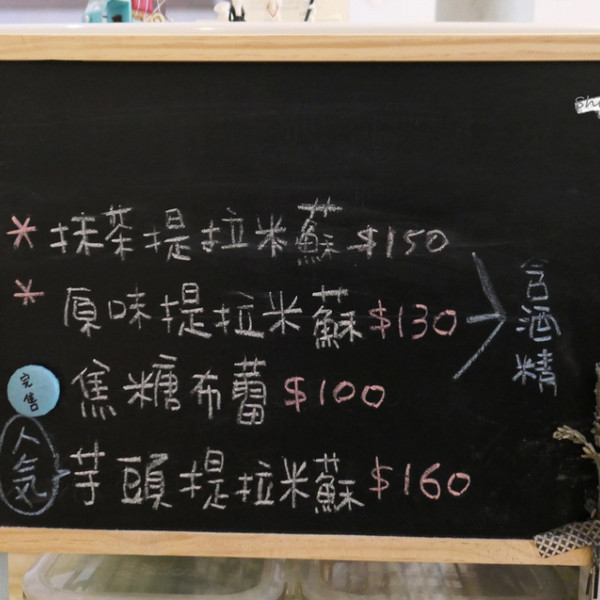 * 抹茶提拉米蘇 $150
* 原味提拉米蘇 $130
含酒精
完售
焦糖布蕾 $100
人気
芋頭提拉米蘇 $160